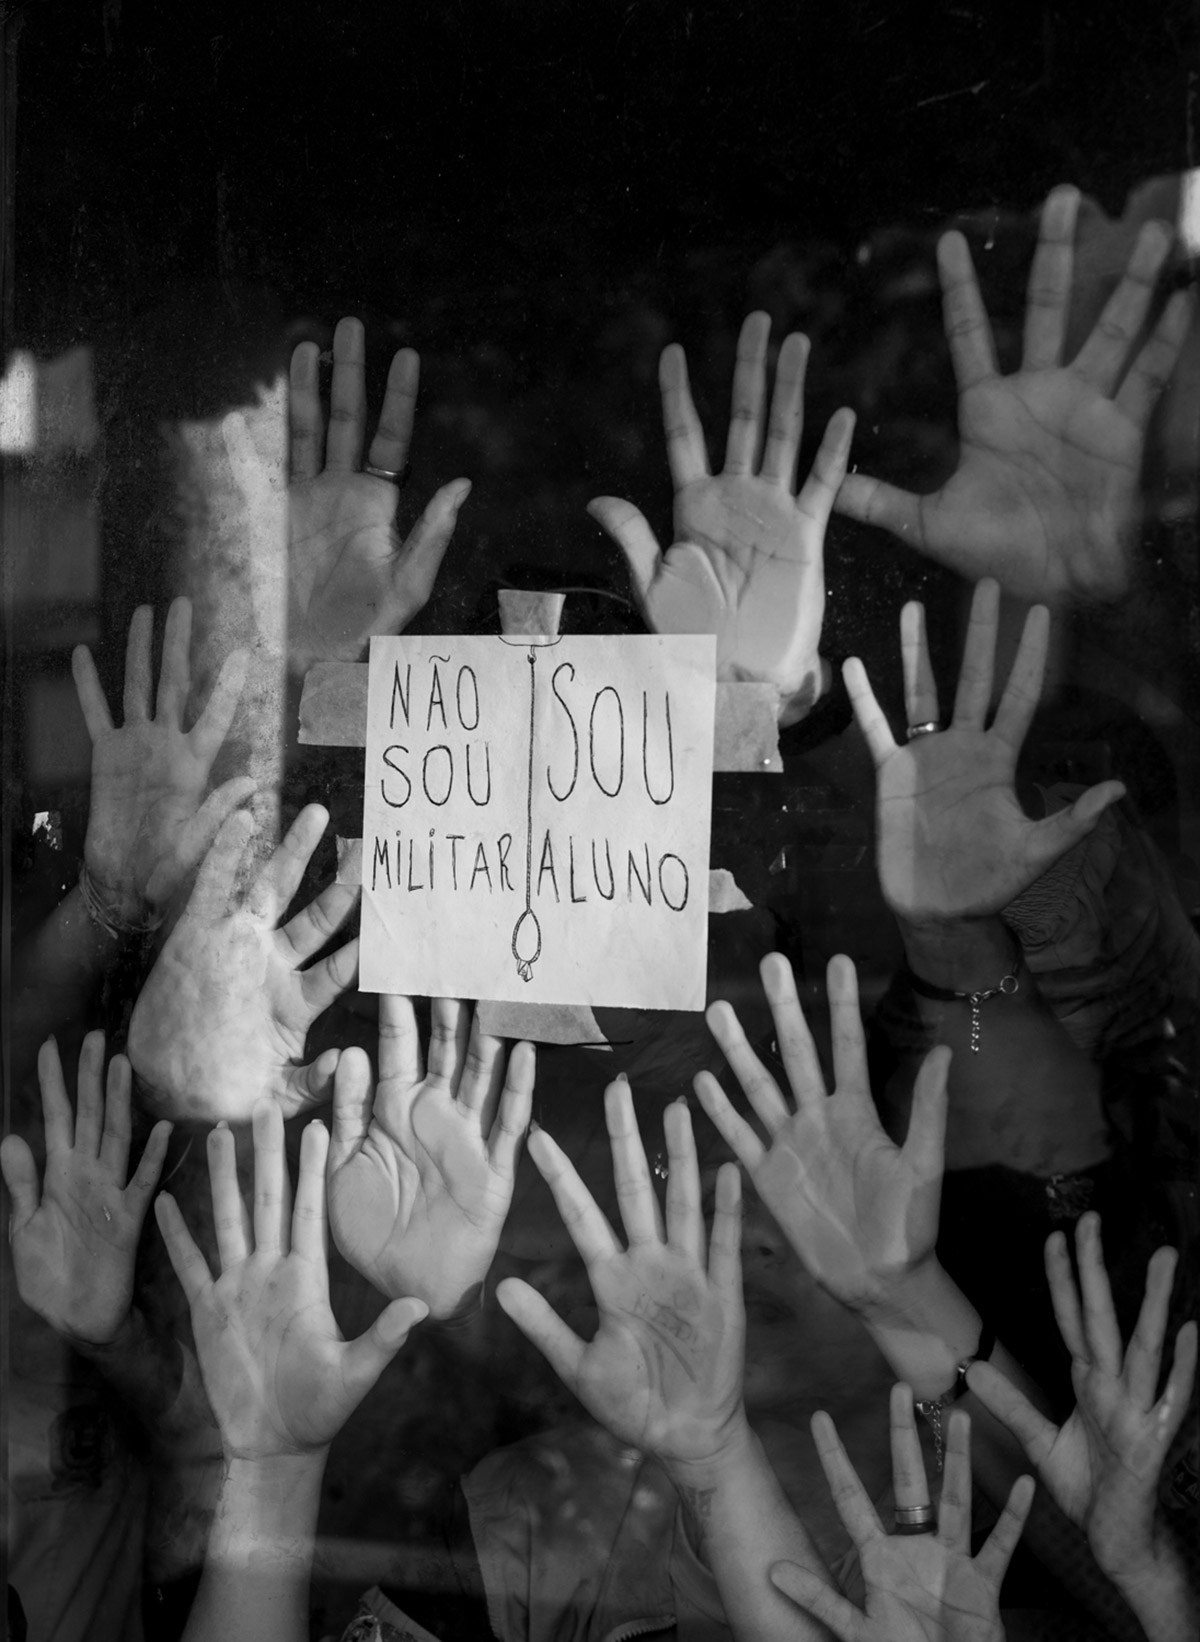 NÃO
SOU
MiLiTAR
SOU
ALUNO